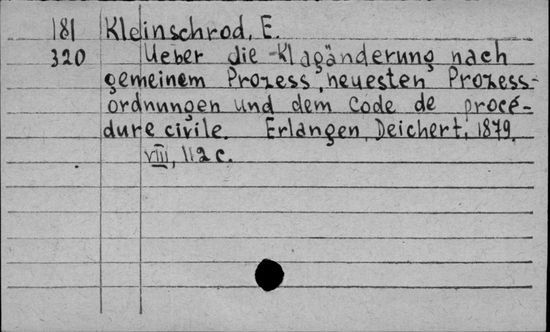 181 Kleinschrod, E.
320 Ueber die Klagänderung nach
gemeinem Prozess, neuesten Prozess-
ordnungen und dem Code de procé-
dure civile. Erlangen, Deichert, 1879.
VIII, 112 c.